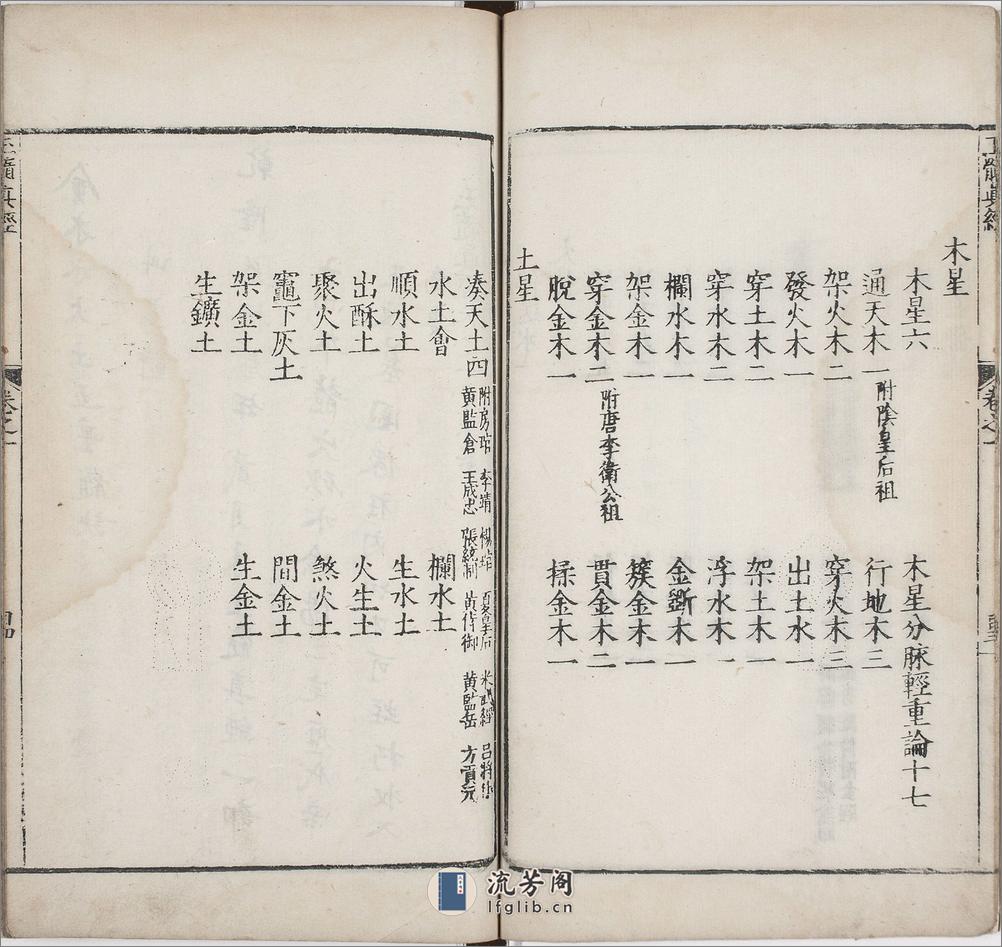 木星
木星六
木星分脉輕重論十七
通天木一 附陰皇后祖
行地木三
架火木二
穿火木三
發火木一
出土水一
穿土木二
架土木一
穿水木二
浮水木一
欄水木一
金斷木一
架金木一
簇金木一
穿金木二 附唐李衛公祖
貫金木二
脫金木一
揉金木一
土星
湊天土四 附房琯 李靖
黃監倉 王成忠 張統制 黃侍御 黃監岳 方貢元
水土會
欄水土
順水土
生水土
出酥土
火生土
聚火土
煞火土
竈下灰土
間金土
架金土
生金土
生鑛土
髓真經
卷之一
流芳阁
lfglib.cn